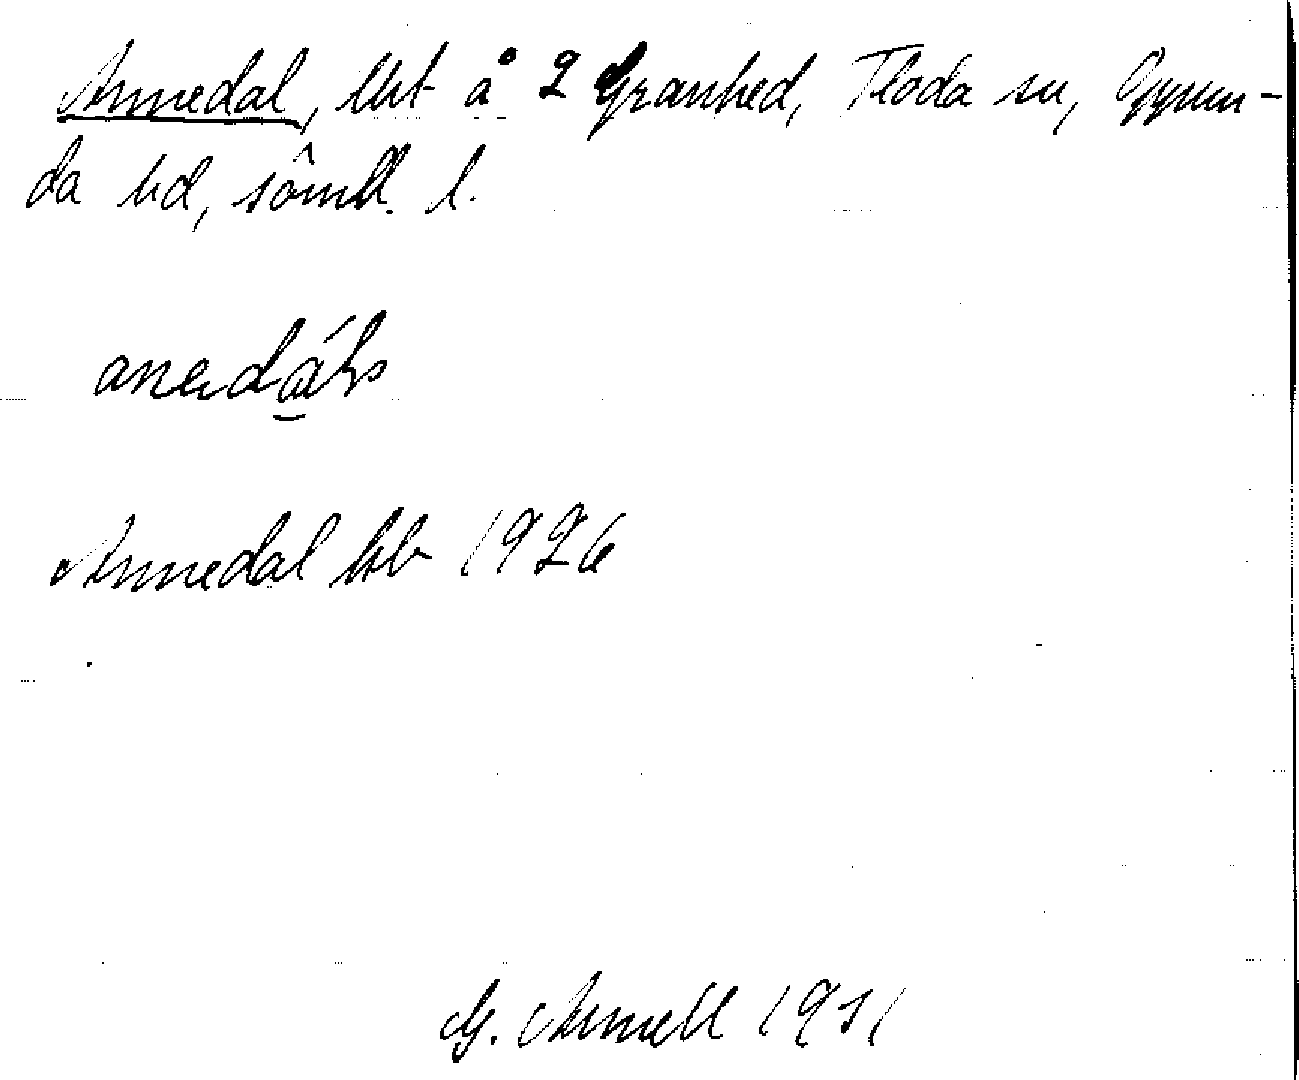 Annedal, lht å 2 Granhed, Floda sn, Oppun-
da hd, sömtl. l.
Annedal hb 1926
G. Arnell 1931